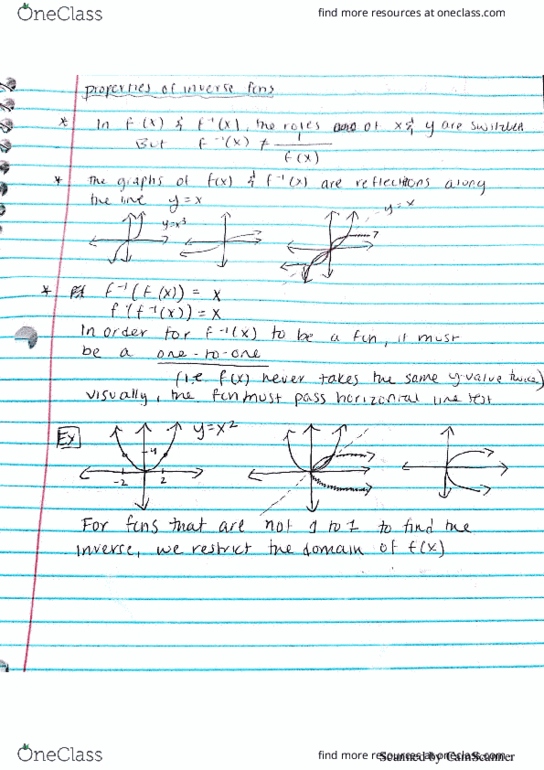 OneClass find more resources at oneclass.com
properties of inverse fcns
* In f(x) & f⁻¹(x), the roles of x & y are switched
But f⁻¹(x) ≠ 1/f(x)
* The graphs of f(x) & f⁻¹(x) are reflections along
the line y=x
y=x³
y=x
* f⁻¹(f(x)) = x
f(f⁻¹(x)) = x
In order for f⁻¹(x) to be a fcn, it must
be a one-to-one
(i.e. f(x) never takes the same y-value twice)
visually, the fcn must pass horizontal line test
Ex y=x²
4
-2 2
For fcns that are not 1 to 1 to find the
inverse, we restrict the domain of f(x)
OneClass find more resources at oneclass.com
Scanned by CamScanner